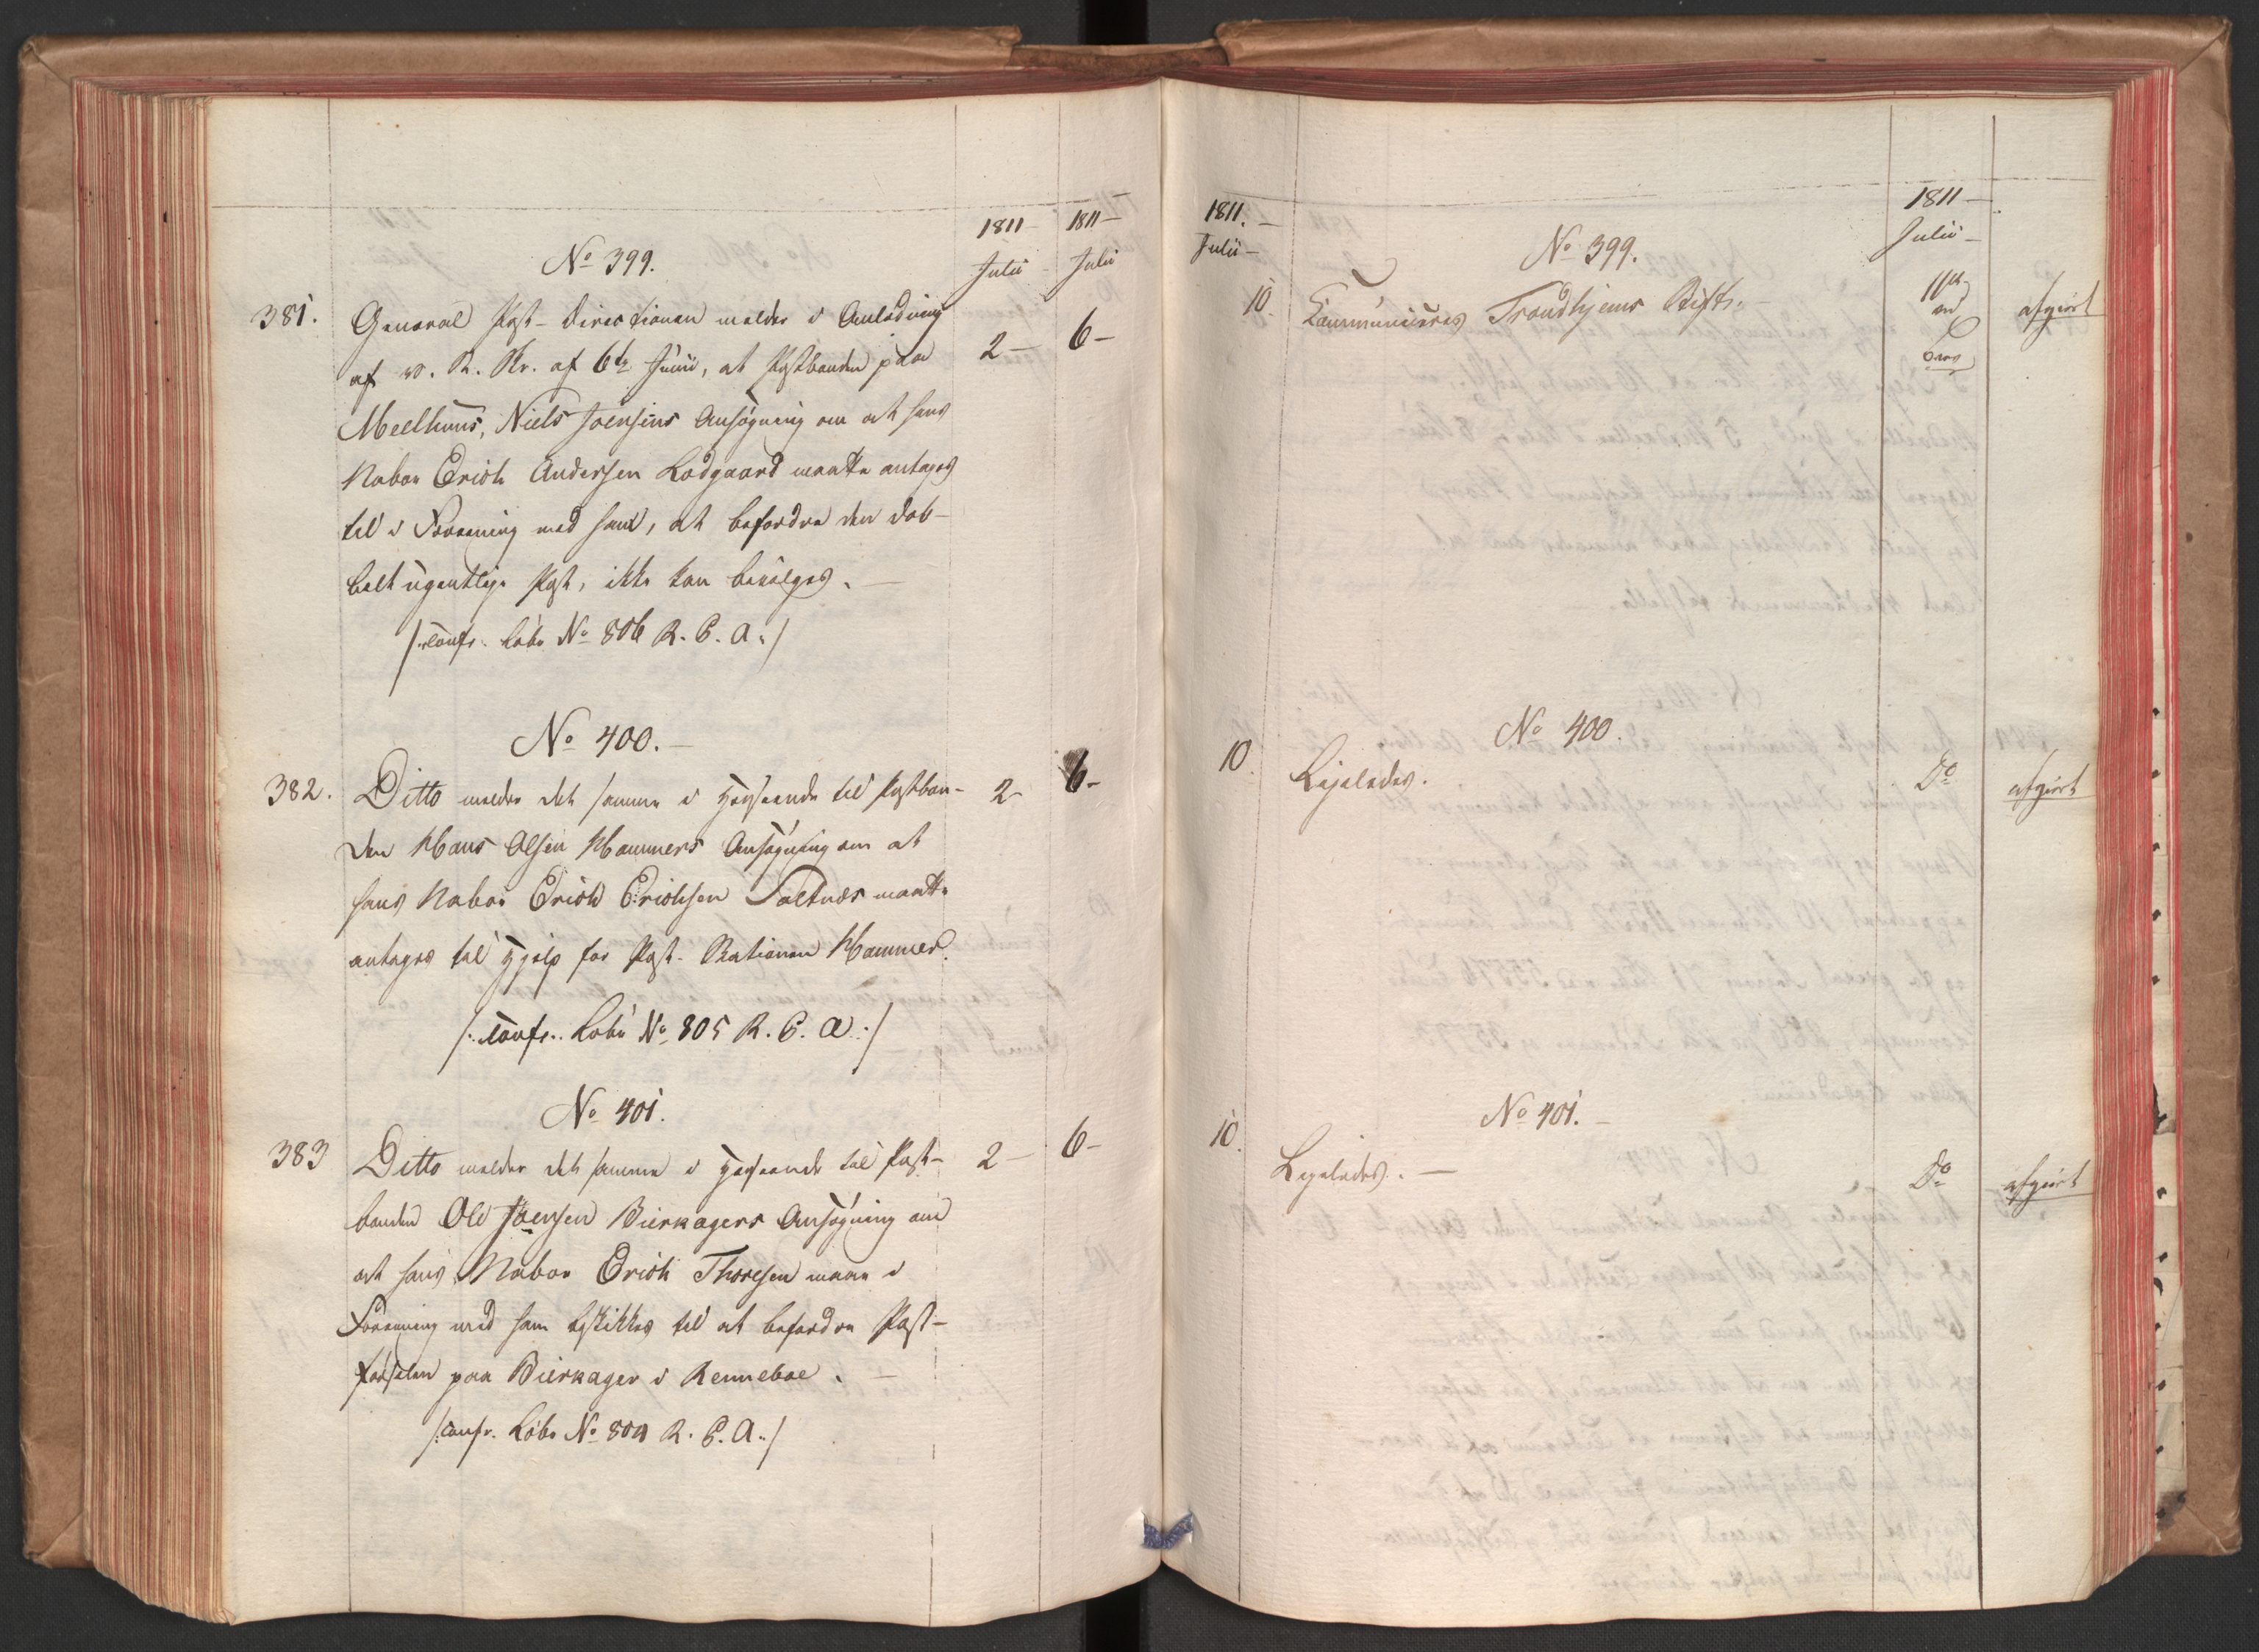 1811 – 1811 –
Julii – Julii
No 399.
381. General Post-Directionen melder i Anledning 2 – 6 –
af v. R. Skr. af 6te Junii, at Postbonden paa
Meelhuus, Niels Joensens Ansøgning om at hans
Naboe Erich Andersen Lodgaard maatte antages
til i Foreening med ham, at befordre den dob-
belt ugentlige Post, ikke kan bevilges. –
/:confr. Løbe No 806 R. C. A:/
No 400. –
382. Ditto melder det samme i Henseende til Postbon- 2 – 6 –
den Hans Olsen Hammers Ansøgning om at
hans Naboe Erich Erichsen Saltnes maatte
antages til Hjelp for Post-Stationen Hammer.
/:confr. Løbe No 805 R. C. A:/
No 401.
383 Ditto melder det samme i Henseende til Post- 2 – 6 –
bonden Ole Joensen Bierkagers Ansøgning om
at hans Naboe Erich Thoresen maae i
Foreening med ham beskikkes til at befordre Post-
førselen paa Bierkager i Renneboe. –
/:confr. Løbe No 804 R. C. A:/
1811. – 1811 –
Julii – Julii –
No 399.
10. Communiceres Trondhjems Stift. – afgiort
No 400.
10. Ligeledes. Do afgiort
No 401. –
10. Ligeledes. – Do afgiort